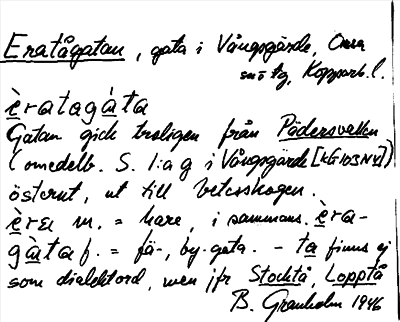 Eratågatan, gata i Vångsgärde, Orsa
sn ō tg, Kopparb. l.
èratagáta
Gatan gick troligen från Pädersvallen
(omedelb. S. l:a g i Vångsgärde [KG103NV])
österut, ut till betesskogen.
èra m. = hare, i sammans. èra-
gàta f. = fä-, by-gata. - ta finns ej
som dialektord, men jfr Stocktå, Lopptå
B. Granholm 1946